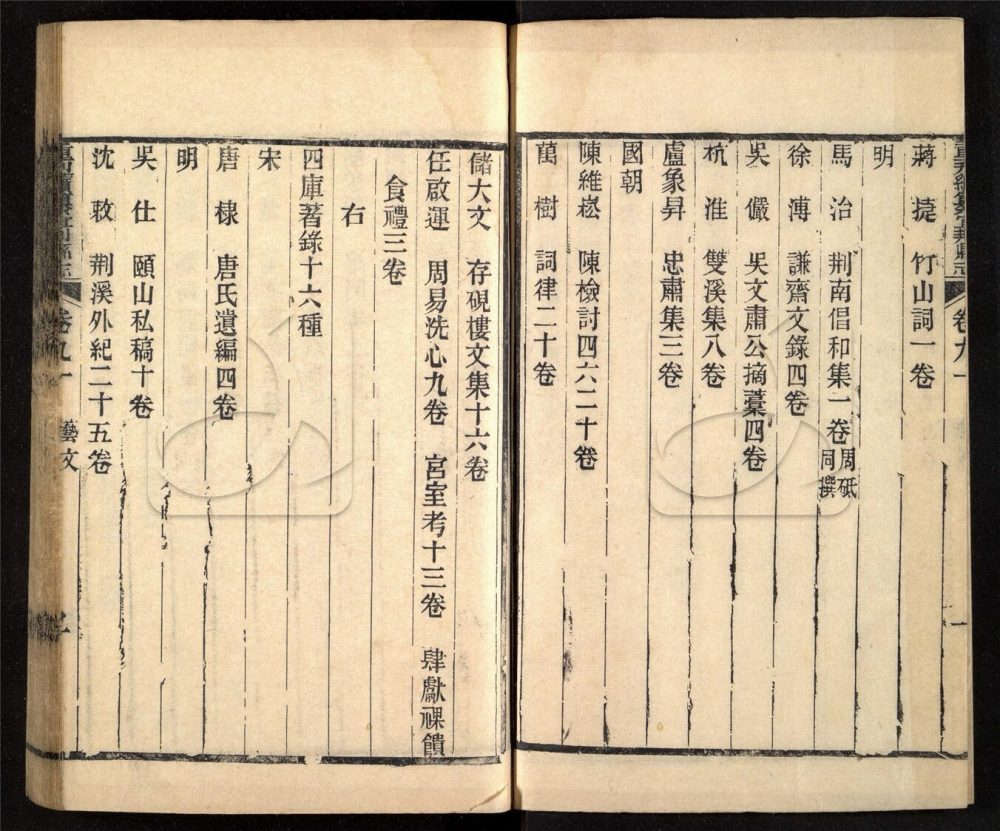 蔣捷　竹山詞一卷
明
馬治　荆南倡和集一卷周砥同撰
徐溥　謙齋文錄四卷
吳儼　吳文肅公摘藁四卷
杭淮　雙溪集八卷
盧象昇　忠肅集三卷
國朝
陳維崧　陳檢討四六二十卷
萬樹　詞律二十卷
儲大文　存硯樓文集十六卷
任啟運　周易洗心九卷　宮室考十三卷　肆獻祼饋
食禮三卷
右
四庫著錄十六種
宋
唐棣　唐氏遺編四卷
明
吳仕　頤山私稿十卷
沈敕　荆溪外紀二十五卷
卷九　藝文